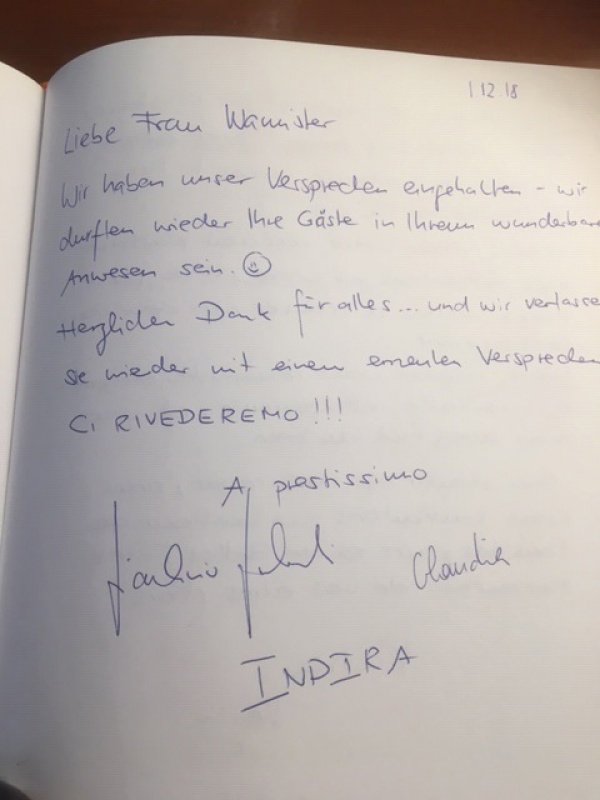 1 12.18
Liebe Frau Wannister
Wir haben unser Versprechen eingehalten - wir
durften wieder Ihre Gäste in Ihrem wunderbare
Anwesen sein. ☺
Herzlichen Dank für alles... und wir verlasse
Sie wieder mit einem erneuten Versprechen
CI RIVEDEREMO !!!
A prestissimo
Claudia
INDIRA